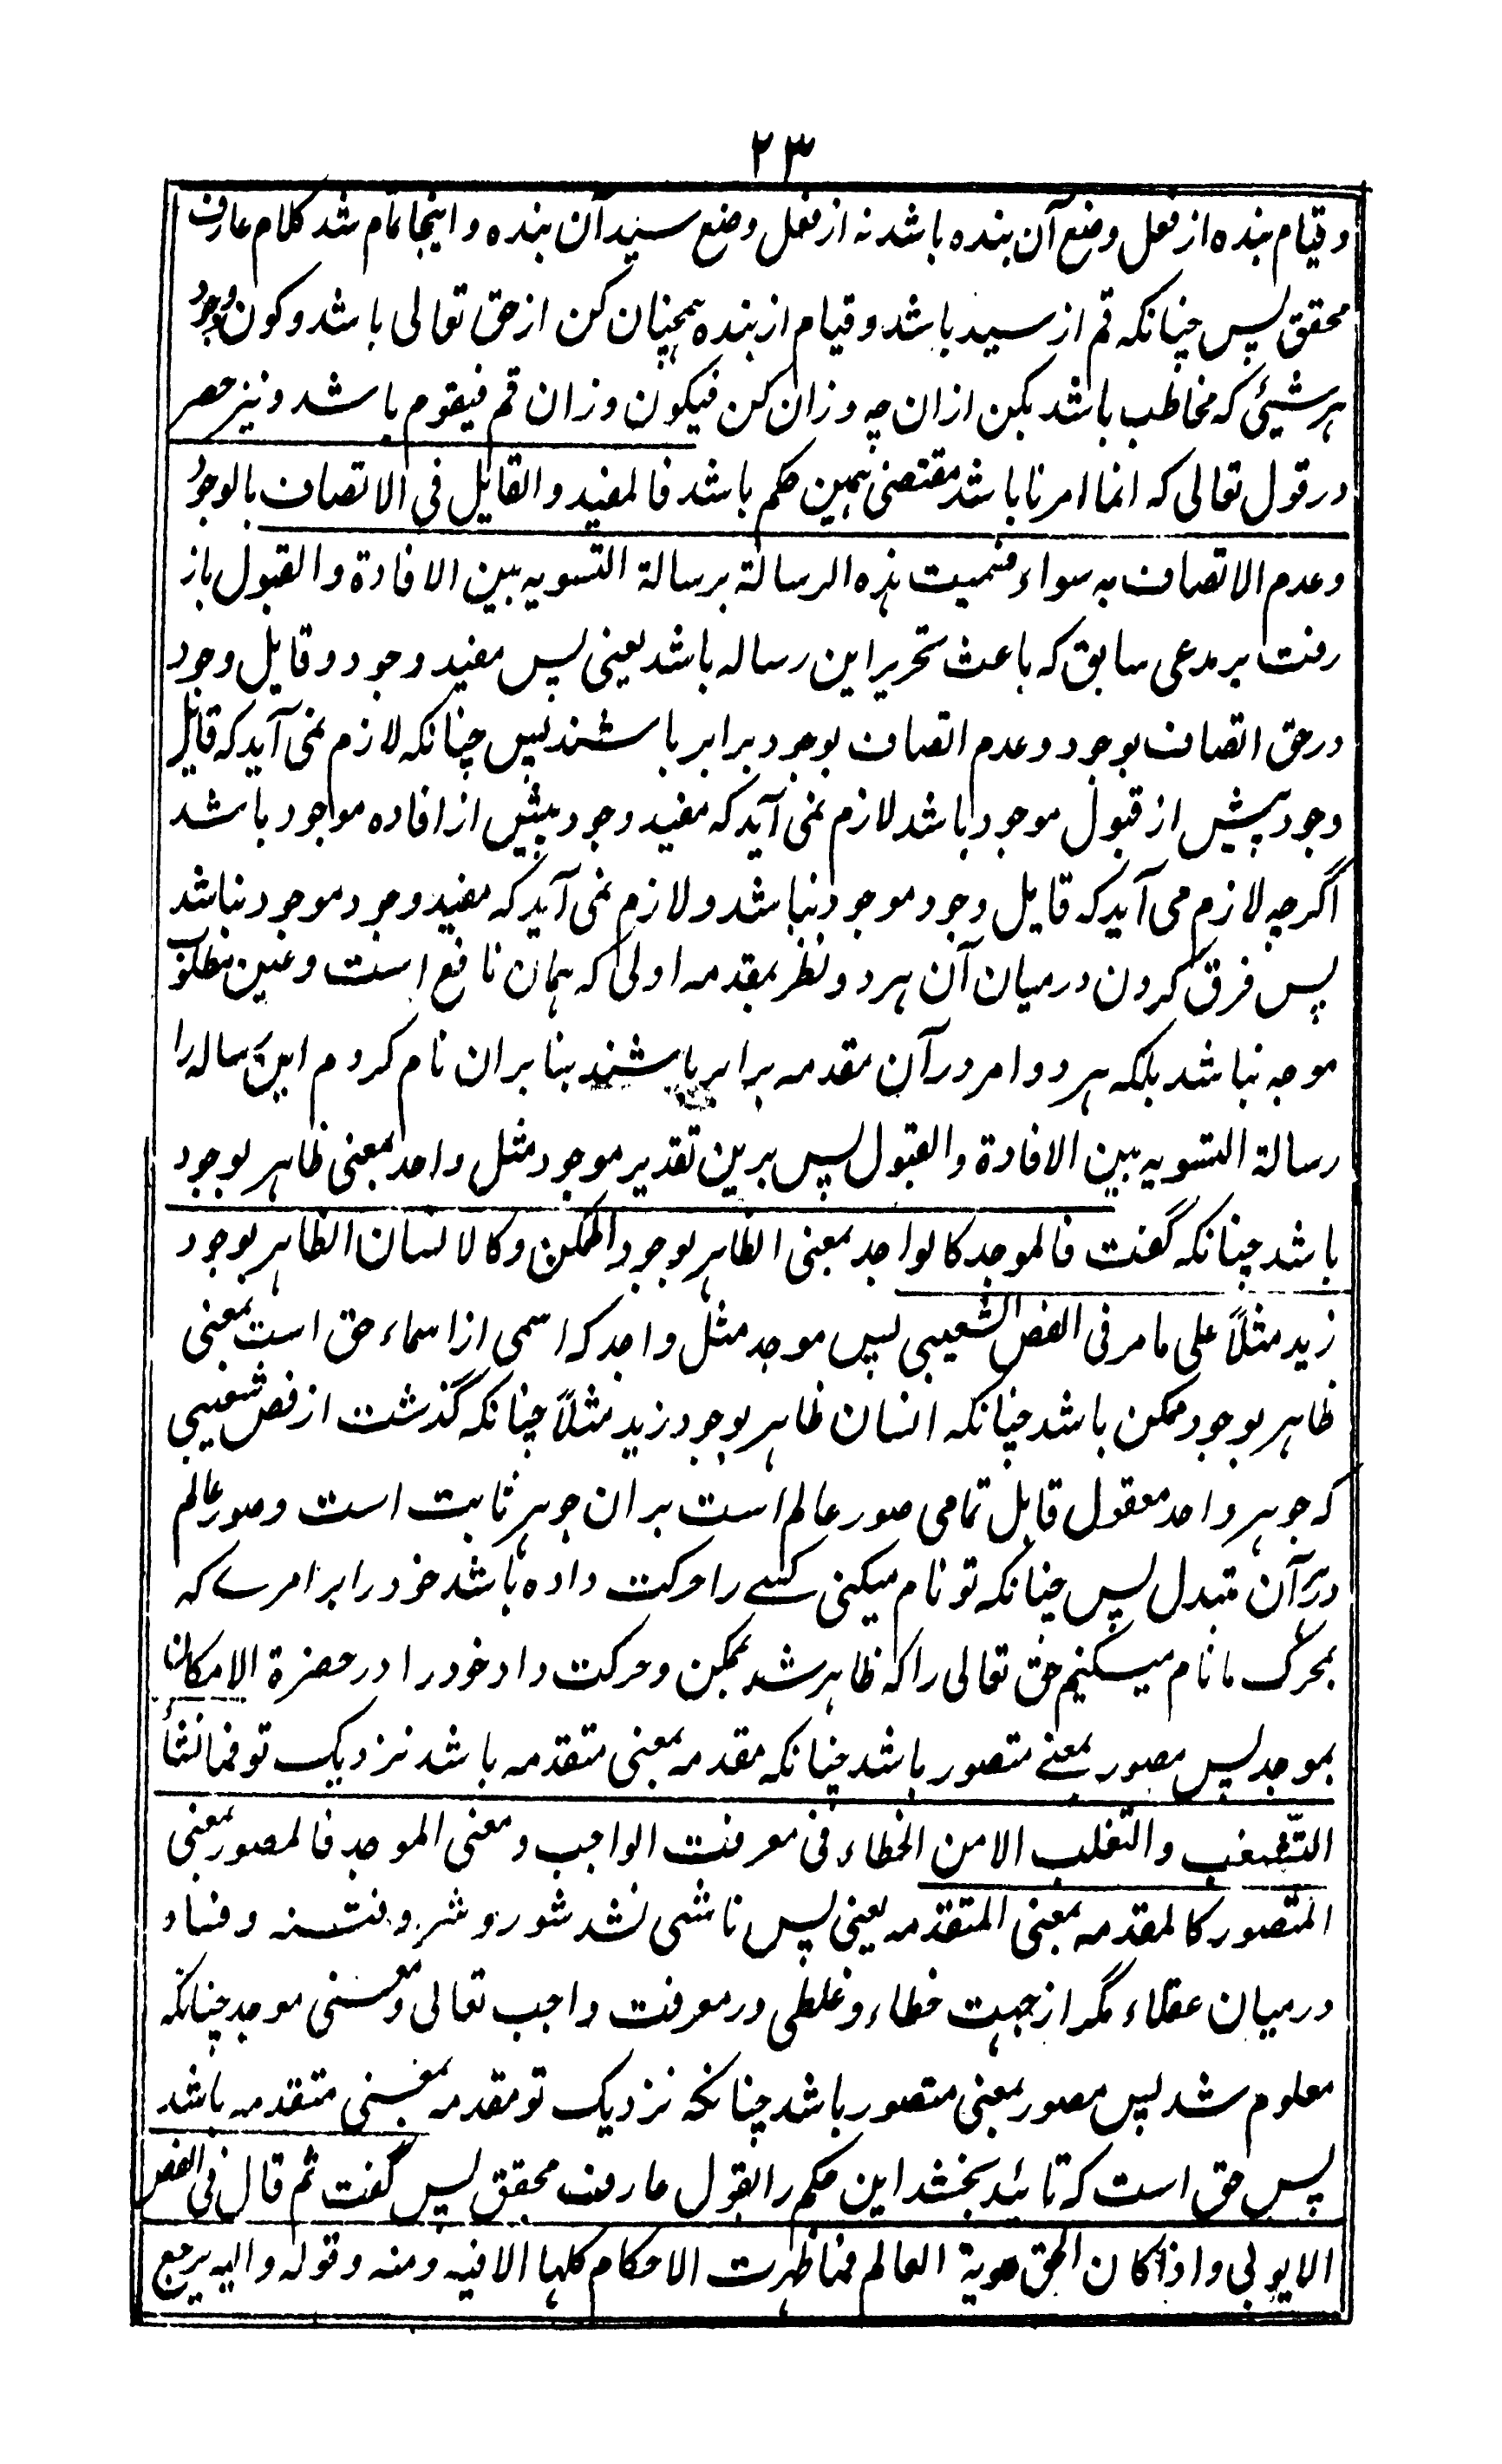 ۲۳
وقیام بنده از فعل وضع آن بنده باشد نه از فعل وضع سید آن بنده و اینجا تمام شد کلام عارف
محقق پس چنانکه قم از سید باشد و قیام از بنده همچنان کن از حق تعالی باشد و کون وجود
هر شیئی که مخاطب باشد بکن ازان چه وزان کن فیکون وزان قم فیقوم باشد و نیز حصر
در قول تعالی که انما امرنا باشد مقتضی همین حکم باشد فالمفید والقایل فی الاتصاف بالوجود
وعدم الاتصاف به سواء فسمیت هذه الرسالة برسالة التسویه بین الافادة والقبول باز
رفت بر مدعی سابق که باعث تحریر این رساله باشد یعنی پس مفید وجود و قایل وجود
در حق اتصاف بوجود و عدم اتصاف بوجود برابر باشند پس چنانکه لازم نمی آید که قایل
وجود پیش از قبول موجود باشد لازم نمی آید که مفید وجود پیش از افاده موجود باشد
اگرچه لازم می آید که قایل وجود موجود نباشد و لازم نمی آید که مفید وجود موجود نباشد
پس فرق کردن درمیان آن هر دو نظر بمقدمه اولی که همان نافع است و عین مطلوب
موجه نباشد بلکه هر دو امر در آن مقدمه برابر باشند بنا بران نام کردم این رساله را
رسالة التسویه بین الافادة والقبول پس برین تقدیر موجود مثل واحد بمعنی ظاهر بوجود
باشد چنانکه گفت فالموجد کالواجد بمعنی الظاهر بوجود الممکن وکالانسان الظاهر بوجود
زید مثلاً علی ما مر فی الفص الشعیبی پس موجد مثل واجد که اسمی از اسماء حق است بمعنی
ظاهر بوجود ممکن باشد چنانکه انسان ظاهر بوجود زید مثلاً چنانکه گذشت از فص شعیبی
که جوهر واحد معقول قابل تمامی صور عالم است بران جوهر ثابت است و صور عالم
در آن متبدل پس چنانکه تو نام میکنی کسے را حرکت داده باشد خود را بر امرے که
بمحرک ما نام میکنیم حق تعالی را که ظاهر شد بممکن و حرکت داد خود را در حضرة الامکان
بموجد پس مصور بمعنے متصور باشد چنانکه مقدمه بمعنی متقدمه باشد نزدیک تو فما نشأ
التشغب والتغلب الا من الخطاء فی معرفت الواجب ومعنی الموجد فالمصور بمعنی
المتصور کالمقدمه بمعنی المتقدمه یعنی پس ناشی نشد شور و شر و فتنه و فساد
درمیان عقلاء مگر از جهت خطاء و غلطی در معرفت واجب تعالی و معنی موجد چنانکه
معلوم شد پس مصور بمعنی متصور باشد چنانکه نزدیک تو مقدمه بمعنی متقدمه باشد
پس حق است که تائید بخشد این حکم را بقول عارف محقق پس گفت ثم قال فی الفص
الایوبی واذا کان الحق هویة العالم فما ظهرت الاحکام کلها الا فیه ومنه وقوله والیه یرجع